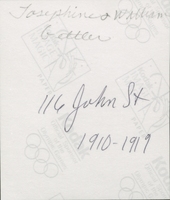 Josephine & William
116 John St
1910-1919